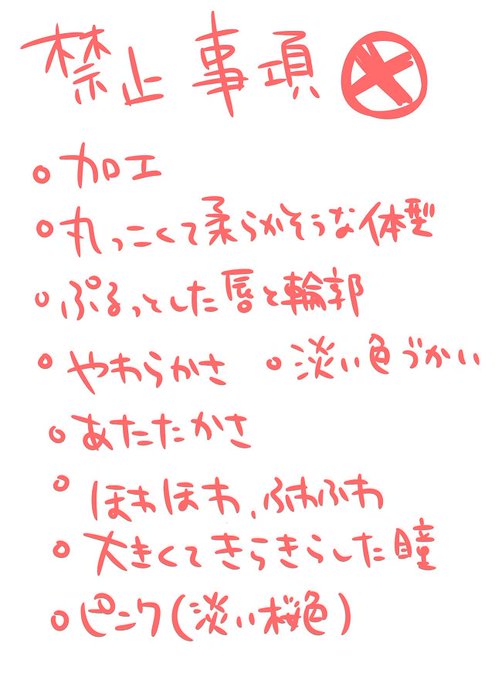 禁止事項
○加工
○丸っこくて柔らかそうな体型
○ぷるっとした唇と輪郭
○やわらかさ ○淡い色づかい
○あたたかさ
○ほわほわ、ふわふわ
○大きくてきらきらした瞳
○ピンク(淡い桜色)